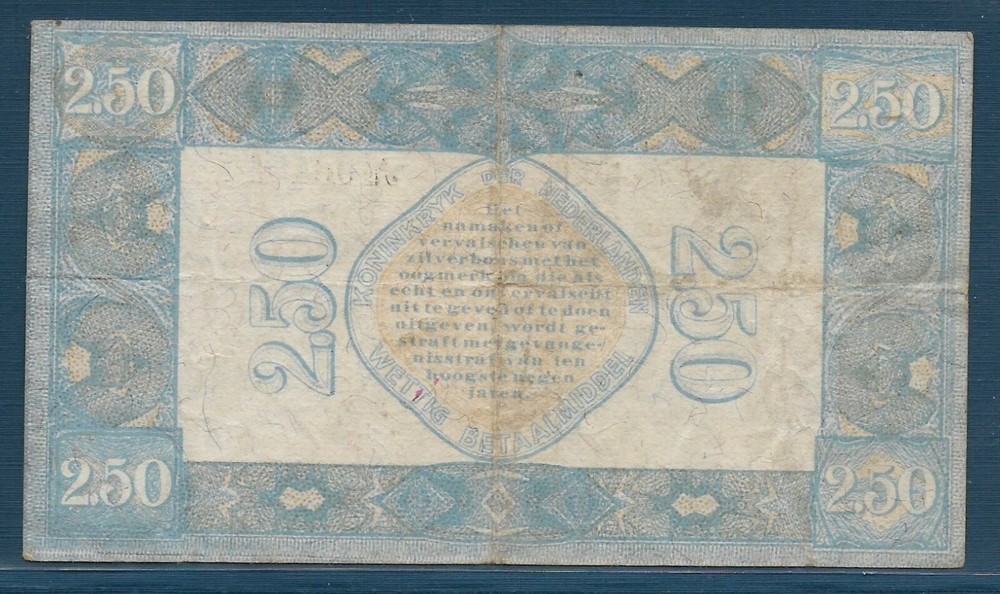 2.50
2.50
KONINKRYK DER NEDERLANDEN
Het
namaken of
vervalschen van
zilverbons met het
oogmerk om die als
echt en onvervalscht
uit te geven of te doen
uitgeven, wordt ge-
straft met gevange-
nisstraf van ten
hoogste negen
jaren.
WETTIG BETAALMIDDEL
2.50
2.50
2.50
2.50